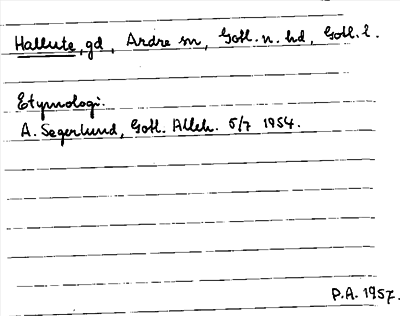 Hallute, gd, Ardre sn, Gotl. n. hd, Gotl. l.
Etymologi.
A. Segerlund, Gotl. Alleh. 5/7 1954.
P.A. 1957.